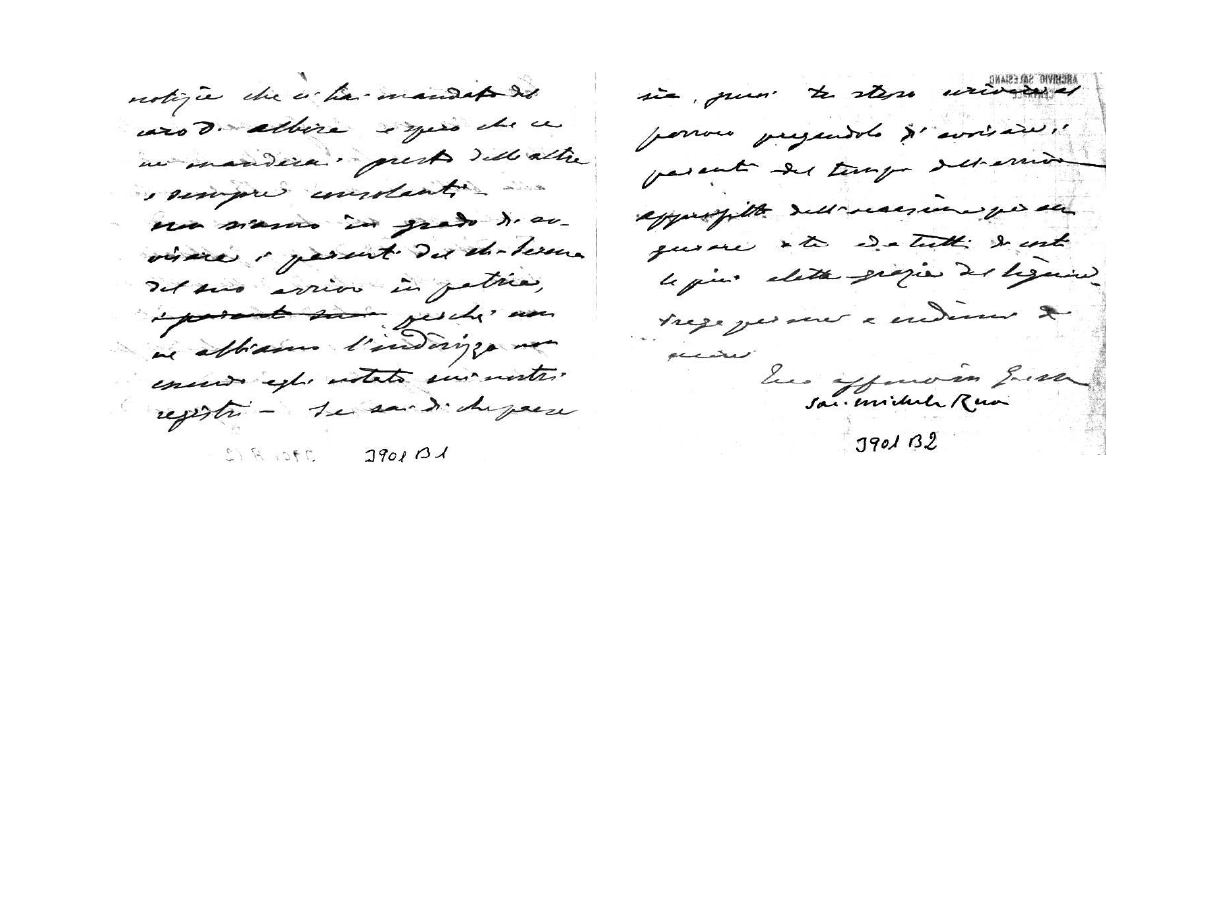 notizie che ci hai mandato del
caro D. Albera e spero che ce
ne manderai presto delle altre
e sempre consolanti -
non siamo in grado di av-
visare i parenti del ch.
del suo arrivo in patria,
i parenti suoi perchè non
ne abbiamo l'indirizzo non
essendo egli notato sui nostri
registri - Se sai di che paese
J901 B1
sia, puoi tu stesso scrivere al
parroco pregandolo di avvisare i
parenti del tempo dell'arrivo
Approfitto dell'occasione per au
gurare a te ed a tutti di costì
le più elette grazie del Signore.
Prega per me e credimi
Tuo aff.mo in G.
Sac. Michele Rua
J901 B2
ARCHIVIO SALESIANO
CENTRALE